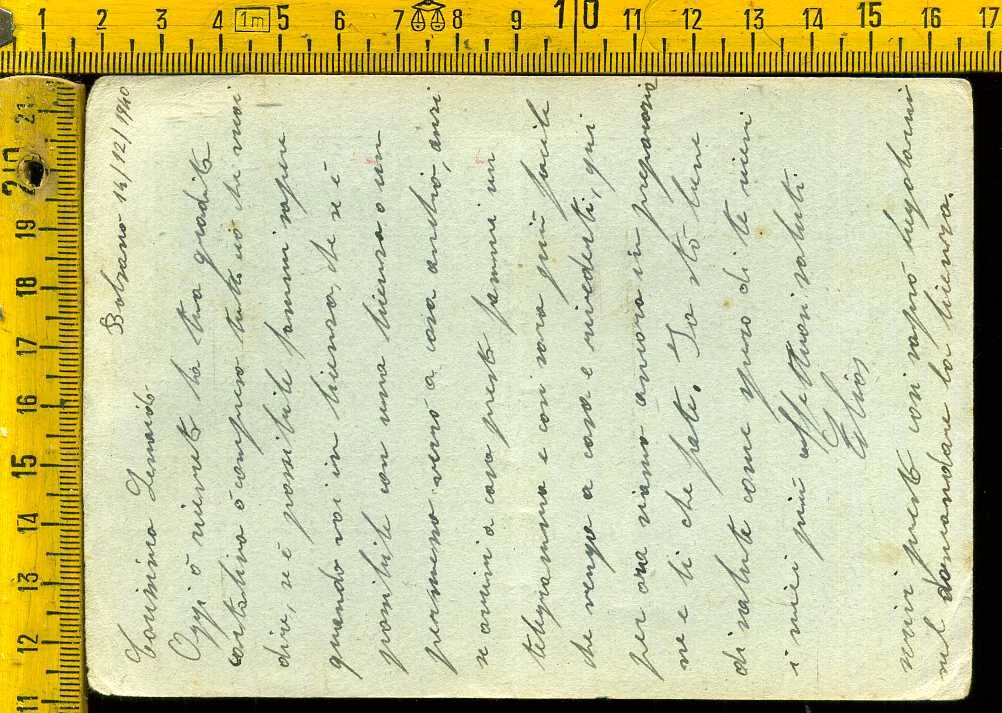 Bolzano 14/12/1940
Carissimo
Oggi ò ricevuto la tua gradita
cartolina ò compreso tutto ciò che vuoi
dire, se è possibile fammi sapere
quando vai in licenza, che se è
possibile con una licenza o un
permesso verrò a casa anch'io, anzi
se arrivi a casa presto fammi un
telegramma e così sarà più facile
che venga a casa e rivederti, qui
per ora siamo ancora in preparazio
ne e ti che fate. Io stò bene
di salute come spero di te ricevi
i miei più affettuosi saluti
Elios
vieni presto così saprò regolarmi
nel domandare la licenza.
1 2 3 4 1m 5 6 7 8 9 10 11 12 13 14 15 16 17
21 20 19 18 17 16 15 14 13 12 11